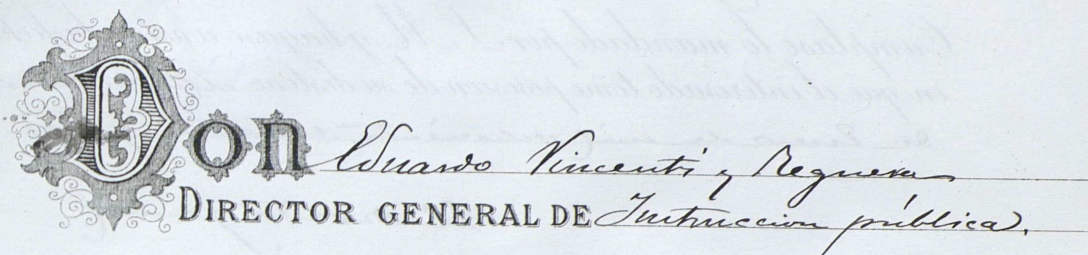 Don Eduardo Vincenti y Reguera
DIRECTOR GENERAL DE Instruccion pública.